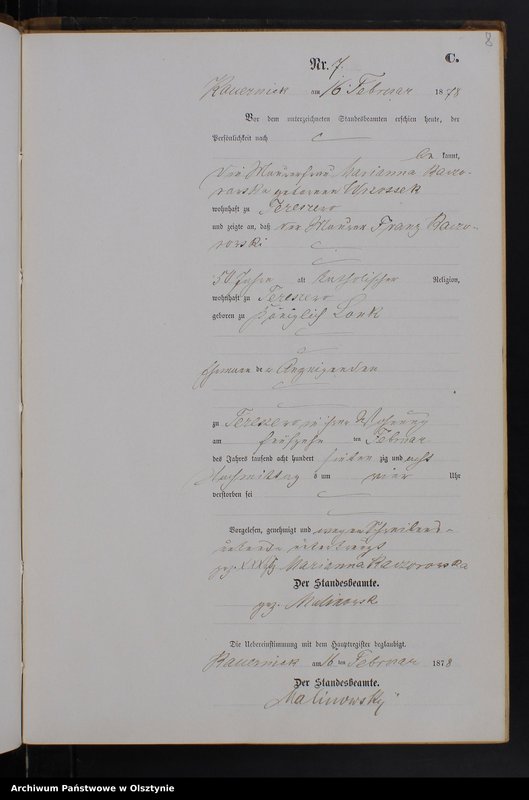 8
Nr. 7.
C.
Kauernick am 16 Februar 1878
Vor dem unterzeichneten Standesbeamten erschien heute, der
Persönlichkeit nach
be kannt,
die Maurerfrau Marianna Raczo-
rowska geborenen Wrossek
wohnhaft zu Tereszewo
und zeigte an, daß der Maurer Franz Raczo-
rowski
50 Jahre alt katholischer Religion,
wohnhaft zu Tereszewo
geboren zu Königlich Lonk
Ehemann der Anzeigenden
zu Tereszewo in ihrer Wohnung
am Februar
des Jahres tausend acht hundert sieben zig und acht
Nachmittag s um vier Uhr
verstorben sei
Vorgelesen, genehmigt und wegen Schreibens-
unterkreuzt
gez. XXX Marianna Raczorowska
Der Standesbeamte.
gez. Malinowsk
Die Uebereinstimmung mit dem Hauptregister beglaubigt.
Kauernick am 16 ten Februar 1878
Der Standesbeamte.
Malinowsky
Archiwum Państwowe w Olsztynie